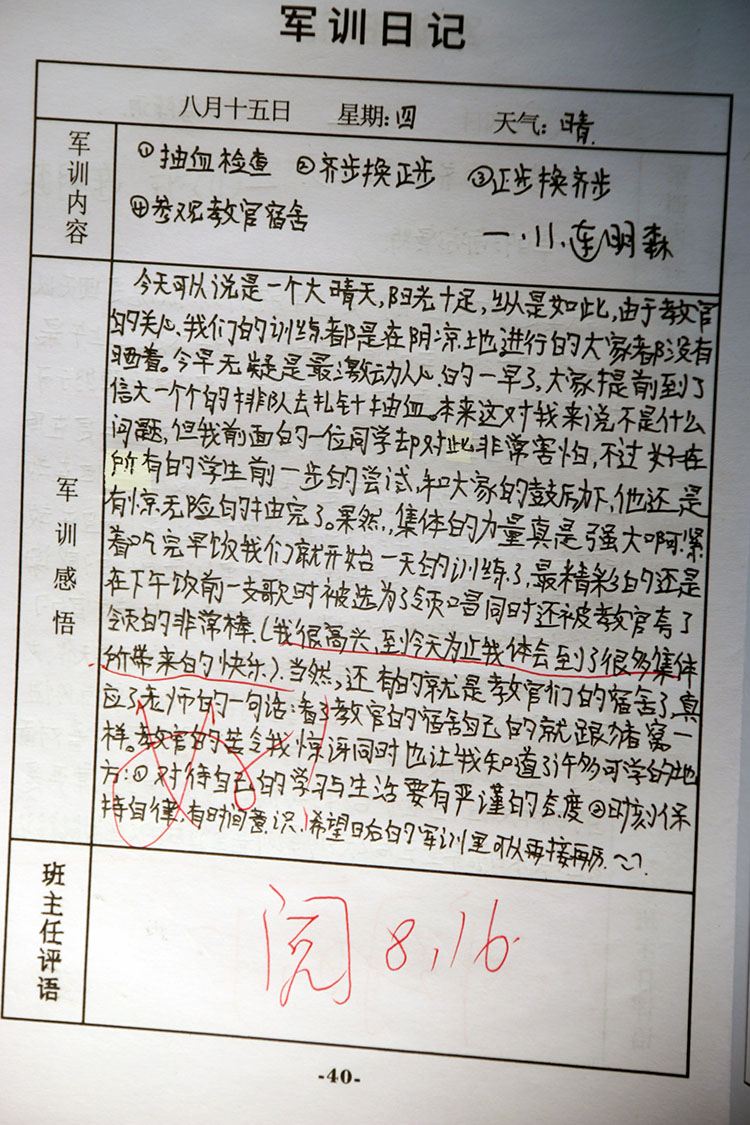 军训日记
八月十五日 星期:四 天气:晴.
军训内容
①抽血检查 ②齐步换正步 ③正步换齐步
④参观教官宿舍
一.11.连明森
军训感悟
今天可以说是一个大晴天,阳光十足,纵是如此,由于教官
的关心,我们的训练都是在阴凉地进行的大家都没有
晒着。今早无疑是最激动人心的一早了,大家提前到了
信大一个个的排队去扎针抽血。本来这对我来说不是什么
问题,但我前面的一位同学却对此非常害怕,不过好在
所有的学生前一步的尝试,和大家的鼓励下,他还是
有惊无险的抽完了。果然,集体的力量真是强大啊!紧
着吃完早饭我们就开始一天的训练了,最精彩的还是
在下午饭前一支歌时被选为了领唱同时还被教官夸了
领的非常棒.(我很高兴,至今天为止我体会到了很多集体
所带来的快乐).当然,还有的就是教官们的宿舍了,真
应了老师的一句话:看了教官的宿舍自己的就跟猪窝一
样。教官的芸令我惊讶同时也让我知道了许多可学的地
方:①对待自己的学习与生活要有严谨的态度②时刻保
持自律,有时间意识,希望日后的军训里可以再接再厉.
班主任评语
阅 8,16
-40-